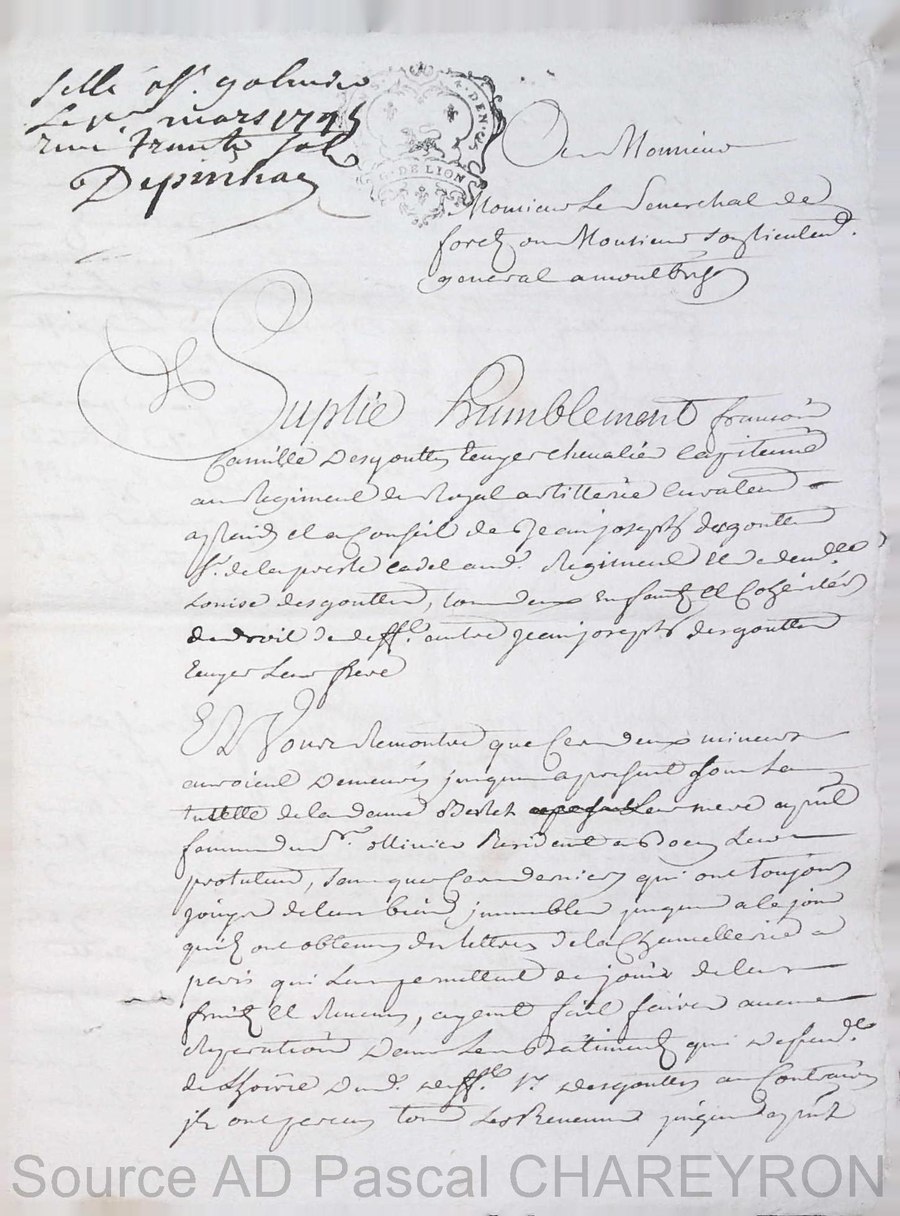 Sellé
Le 1er mars 1745
reçu trente sols
Depinhac
DEN.
G. DE LION
A Monsieur
Monsieur Le Senechal de
forez ou Monsieur son lieutend.
general a montbrison
Suplie humblement francois
Camille Desgouttes Ecuyer chevalier Capitaine
au Regiment de Royal artillerie
et Conseil de Jean joseph desgouttes
Sr. de la cadet aud. Regiment et de demlle
Louise desgouttes, tous deux Enfants et Cohéritiers
de droit de defft. autre jean joseph desgouttes
Ecuyer Leur frere
Et Vous Remontre que Ces deux mineurs
auroient Demeurés jusques a present sous La
tutelle de la dame Leur mere apnt
femme du Sr. ollivier Resident a Boen Leur
protuteur, sans que Ces derniers qui ont toujours
jouys de leurs biens immeubles jusques a le jour
quils ont obtenus des lettres de la Chancellerie a
paris qui Leur permettent de jouir de leurs
fruits et Revenus, ayent fait faire aucune
Reparation Dans Les Bâtiments qui dependt.
de Lhoirie Dud. defft. Sr. Desgouttes au Contraire
ils ont perçus tous Les Revenus jusques apnt
Source AD Pascal CHAREYRON